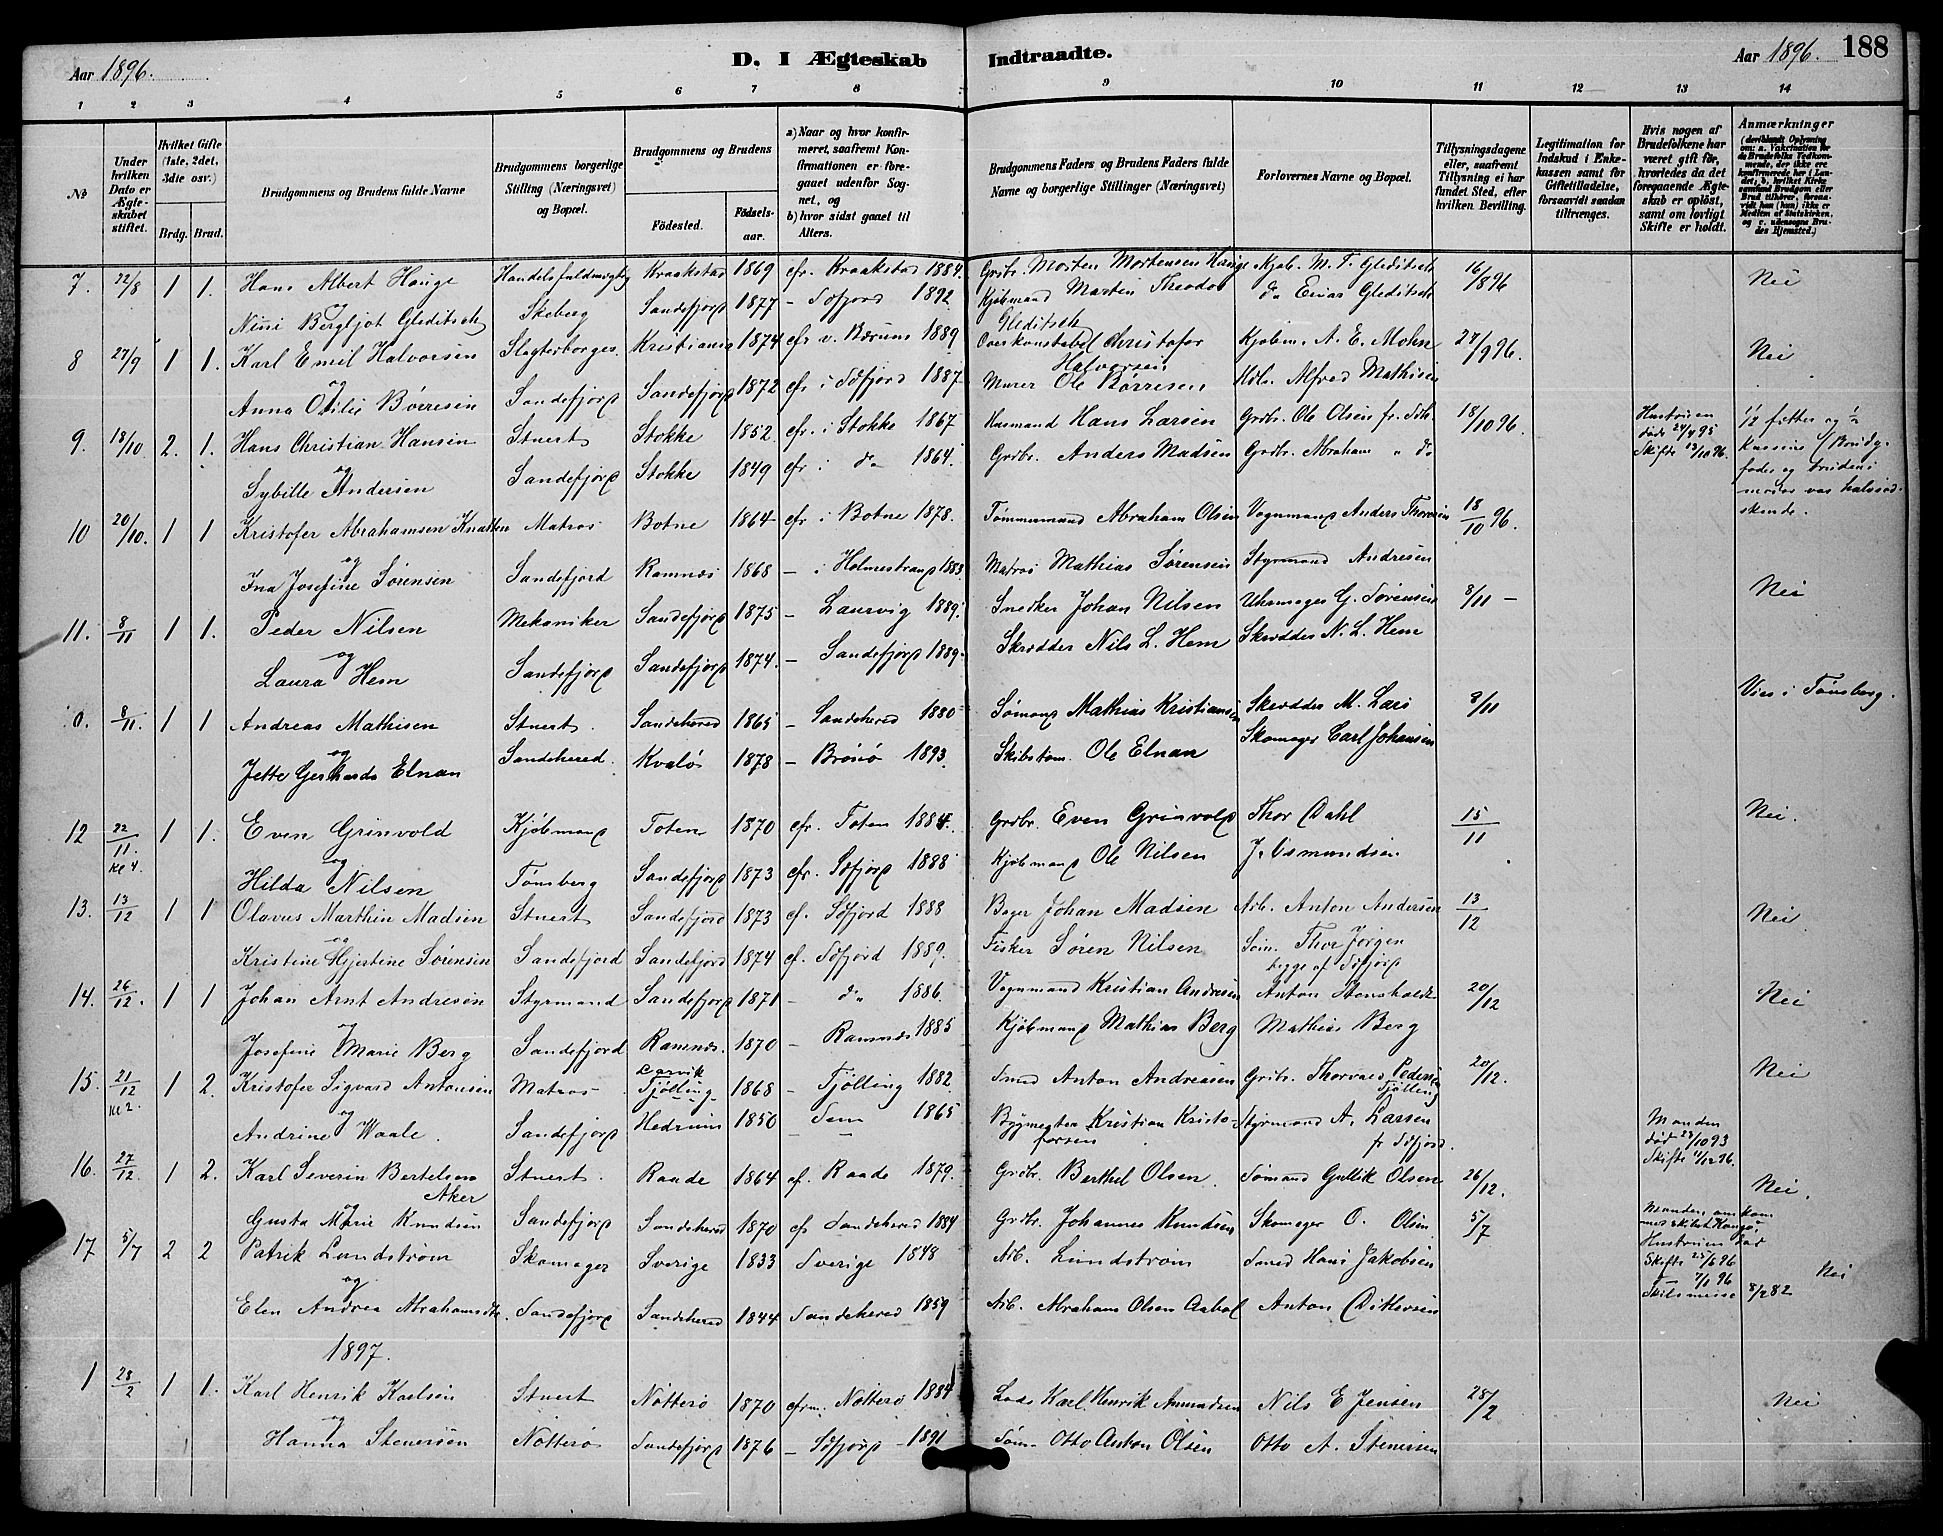 Aar 1896.
D. I Ægteskab
Indtraadte.
Aar 1896.
188
1 2 3 4 5 6 7 8 9 10 11 12 13 14
No
Under hvilken Dato er Ægteskabet stiftet.
Hvilket Gifte (1ste, 2det, 3die osv.)
Brdg. Brud.
Brudgommens og Brudens fulde Navne
Brudgommens borgerlige Stilling (Næringsvei) og Bopæl.
Brudgommens og Brudens
Fødested.
Fødselsaar.
a) Naar og hvor konfirmeret, saafremt Konfirmationen er foregaaet udenfor Sognet, og
b) hvor sidst gaaet til Alters.
Brudgommens Faders og Brudens Faders fulde Navne og borgerlige Stillinger (Næringsvei)
Forlovernes Navne og Bopæl.
Tillysningsdagene eller, saafremt Tillysning ei har fundet Sted, efter hvilken Bevilling.
Legitimation for Indskud i Enkekassen samt for Giftetilladelse, forsaavidt saadan tiltrænges.
Hvis nogen af Brudefolkene har været gift før, hvorledes da det foregaaende Ægteskab er opløst, samt om lovligt Skifte er holdt.
Anmærkninger (deriblandt Oplysning om: a. Vaccination for de Brudefolks Vedkommende, der ikke ere konfirmerede her i Landet, b. hvilket Kirkesamfund Brudgom eller Brud tilhører, forsaavidt han (hun) ikke er Medlem af Statskirken, og c. udensogns Brudes Hjemsted.)
7. 22/8 1 1. Hans Albert Hauge Handelsfuldmægtig Kraakstad 1869 cfr. Kraakstad 1884. Grdbr. Morten Mortensen Hauge Kjøb. M. T. Gleditsch 16/8 96 Nei
og
Ninni Bergljot Gleditsch Skeberg Sandefjord 1877 – Sdfjord 1892 Kjøbmand Martin Theodor Gleditsch do Einar Gleditsch
8 27/9 1 1. Karl Emil Halvorsen Slagterborger Kristiania 1874 cfr v. Bærum 1889 Overkonstabel Christofer Halvorsen Kjøbm. A. E. Mohn 27/9 96. Nei
og
Anna Otilie Børresen Sandefjord Sandefjord 1872 cfr i Sdfjord 1887 Murer Ole Børresen Alfred Mathisen
9. 18/10 2. 1. Hans Christian Hansen Stuert Stokke 1852. cfr. i Stokke 1867 Husmand Hans Larsen Grdbr. Ole Olsen fr. Sdh. 18/10 96. Hustruen døde 24/4 95 Skifte 13/10 96. 1/2 fætter og 1/2 kusine (Brudg. fader og brudens moder var halvsødskende.
og
Sybille Andersen Sandefjord Stokke 1849 cfr i do 1864. Grdbr. Anders Madsen Grdbr. Abraham " do
10 20/10. 1 1 Kristofer Abrahamsen Knatten Matros Botne 1864 cfr i Botne 1878. Tømmermand Abraham Olsen Vognmand Anders Thoresen 18/10 96.
og
Ina Josefine Sørensen Sandefjord Ramnæs 1868 – i Holmestrand 1883 Matros Mathias Sørensen Styrmand Andresen
11. 8/11 1 1. Peder Nilsen Mekaniker Sandefjord 1875 – Laurvig 1889. Snedker Johan Nilsen Uhrmager G. Sørensen 8/11 – Nei
og
Laura Hem Sandefjord Sandefjord 1874. – Sandefjord 1889 Skrædder Nils L. Hem Skrædder N. L. Hem
0. 8/11. 1 1 Andreas Mathisen Stuert. Sandehered 1865 – Sandehered 1880 Sømand Mathias Kristiansen Skrædder M. Lars 8/11 Vies i Tønsberg.
og
Jette Gerharda Elnan Sandehered. Kvalø 1878 – Brønø 1893. Skibstøm. Ole Elnan Skomager Carl Johansen
12 22/11. Kl 4. 1 1. Even Grinvold Kjøbmand Toten 1870 cfr. Toten 1884. Grdbr. Even Grinvold Thor Dahl 15/11 Nei.
og
Hilda Nilsen Tønsberg Sandefjord 1873 cfr. Sdfjord 1888 Kjøbmand Ole Nilsen J. Asmundsen
13. 13/12 1 1 Olavus Marthin Madsen Stuert Sandefjord 1873 cf. Sdfjord 1888 Bager Johan Madsen Arb. Anton Andersen 13/12 Nei
og
Kristine Hjertine Sørensen Sandefjord Sandefjord 1874 cf. Sdfjord 1889. Fisker Søren Nilsen Søm. Thor Jørgen begge af Sdfjord
14. 26/12. 1 1 Johan Arnt Andresen Styrmand Sandefjord 1871 – do 1886. Vognmand Kristian Andresen Anton Stensholdt 20/12 Nei
og
Josefine Marie Berg Sandefjord Ramnæs. 1870 – Ramnæs 1885 Kjøbmand Mathias Berg Mathias Berg
15. 21/12 Kl 2. 1 2. Kristofer Sigvard Antonsen Matros Larvik Tjølling 1868 – Tjølling 1882. Smed Anton Andreasen Grdbr. Thorvald Pedersen Tjølling 20/12. Nei
og
Andrine Waale. Sandefjord Hedrum 1850 – Sem 1865 Kristian Kristofersen Styrmand A. Larsen fr Sdfjord. Manden død 23/10 93 Skifte 4/12 96.
16. 27/12. 1 2. Karl Severin Bertelsen Aker Stuert. Raade 1864 cf. Raade 1879. Grdbr. Berthel Olsen. Sømand Gullik Olsen 26/12. Nei.
og
Gusta Marie Knudsen Sandefjord Sandehered 1870 cf Sandehered 1884 Grdbr. Johannes Knudsen Skomager O. Olsen Manden omkom med skibet Kongo.
17 5/7 2 2 Patrik Lundstrøm Skomager Sverige 1833 Sverige 1848 Arb. Lundstrøm Smed Hans Jakobsen 5/7 Hustruen død Skifte 25/6 96 7/1 96 Nei
og
Elen Andrea Abrahamsdtr. Sandefjord Sandehered 1844 Sandehered 1859 Arb. Abraham Olsen Aabol Anton Ditlevsen Skilsmisse 8/2 82
1897.
1 28/2 1 1. Karl Henrik Karlsen Stuert Nøtterø 1870 cfrm. Nøtterø 1884 Lods Karl Henrik Amundsen Nils E Jensen 28/2 Nei
og
Hanna Stenersen Nøtterø Sandefjord 1876 – Sdfjord 1891 Søm. Otto Anton Olsen Otto A. Stenersen